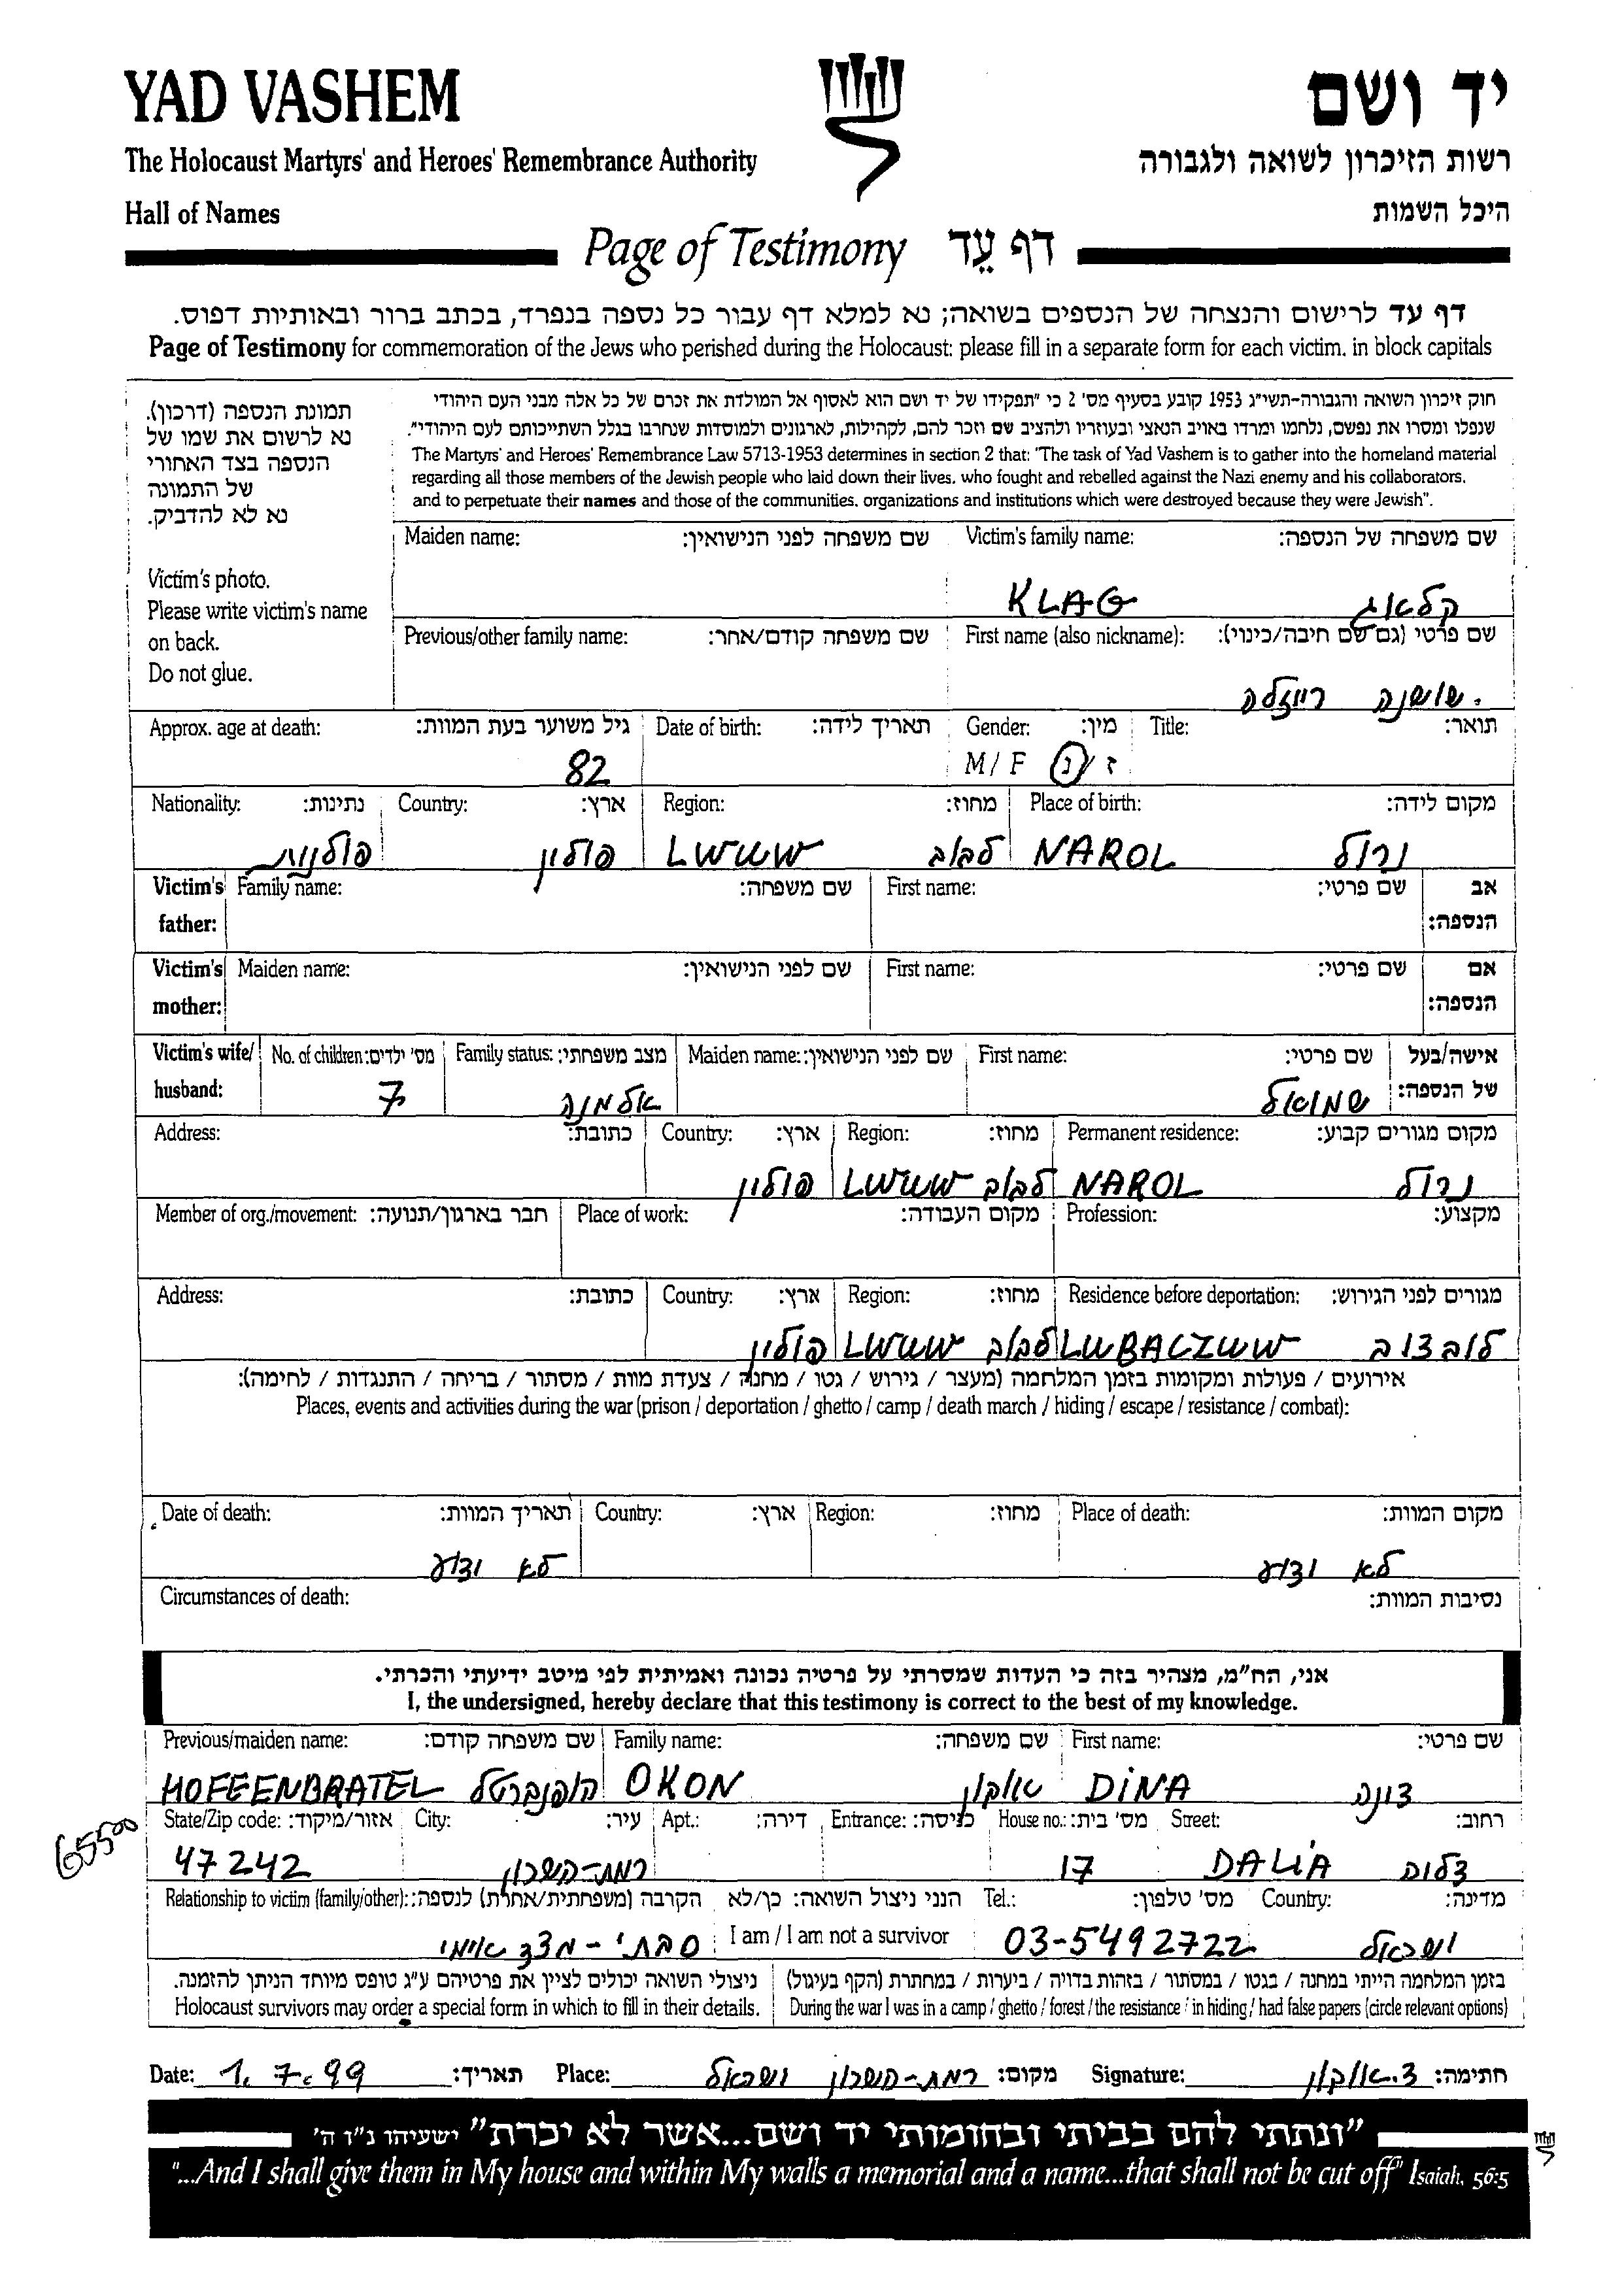 YAD VASHEM יד ושם
The Holocaust Martyrs' and Heroes' Remembrance Authority רשות הזיכרון לשואה ולגבורה
Hall of Names היכל השמות
Page of Testimony דף עֵד
דף עד לרישום והנצחה של הנספים בשואה; נא למלא דף עבור כל נספה בנפרד, בכתב ברור ובאותיות דפוס.
Page of Testimony for commemoration of the Jews who perished during the Holocaust; please fill in a separate form for each victim, in block capitals
תמונת הנספה (דרכון).
נא לרשום את שמו של
הנספה בצד האחורי
של התמונה
נא לא להדביק.
Victim's photo.
Please write victim's name
on back.
Do not glue.
חוק זיכרון השואה והגבורה-תשי"ג 1953 קובע בסעיף מס' 2 כי "תפקידו של יד ושם הוא לאסוף אל המולדת את זכרם של כל אלה מבני העם היהודי
שנפלו ומסרו את נפשם, נלחמו ומרדו באויב הנאצי ובעוזריו ולהציב שם וזכר להם, לקהילות, לארגונים ולמוסדות שנחרבו בגלל השתייכותם לעם היהודי".
The Martyrs' and Heroes' Remembrance Law 5713-1953 determines in section 2 that: "The task of Yad Vashem is to gather into the homeland material
regarding all those members of the Jewish people who laid down their lives, who fought and rebelled against the Nazi enemy and his collaborators,
and to perpetuate their names and those of the communities, organizations and institutions which were destroyed because they were Jewish".
Maiden name: שם משפחה לפני הנישואין: Victim's family name: שם משפחה של הנספה:
KLAG קלאג
Previous/other family name: שם משפחה קודם/אחר: First name (also nickname): שם פרטי (גם שם חיבה/כינוי):
שושנה רייזלה
Approx. age at death: גיל משוער בעת המוות: Date of birth: תאריך לידה: Gender: מין: Title: תואר:
82 M / F ז / נ
Nationality: נתינות: Country: ארץ: Region: מחוז: Place of birth: מקום לידה:
פולנית פולין LWUW לבוב NAROL נרול
Victim's father: Family name: שם משפחה: First name: שם פרטי: אב הנספה:
Victim's mother: Maiden name: שם לפני הנישואין: First name: שם פרטי: אם הנספה:
Victim's wife/ husband: No. of children: מס' ילדים: Family status: מצב משפחתי: Maiden name: שם לפני הנישואין: First name: שם פרטי: אישה/בעל של הנספה:
7 אלמנה שמואל
Address: כתובת: Country: ארץ: Region: מחוז: Permanent residence: מקום מגורים קבוע:
פולין LWUW לבוב NAROL נרול
Member of org./movement: חבר בארגון/תנועה: Place of work: מקום העבודה: Profession: מקצוע:
Address: כתובת: Country: ארץ: Region: מחוז: Residence before deportation: מגורים לפני הגירוש:
פולין LWUW לבוב LUBACZUW לובצוב
אירועים / פעולות ומקומות בזמן המלחמה (מעצר / גירוש / גטו / מחנה / צעדת מוות / מסתור / בריחה / התנגדות / לחימה):
Places, events and activities during the war (prison / deportation / ghetto / camp / death march / hiding / escape / resistance / combat):
Date of death: תאריך המוות: Country: ארץ: Region: מחוז: Place of death: מקום המוות:
לא ידוע לא ידוע
Circumstances of death: נסיבות המוות:
אני, הח"מ, מצהיר בזה כי העדות שמסרתי על פרטיה נכונה ואמיתית לפי מיטב ידיעתי והכרתי.
I, the undersigned, hereby declare that this testimony is correct to the best of my knowledge.
Previous/maiden name: שם משפחה קודם: Family name: שם משפחה: First name: שם פרטי:
HOFFENBRATEL הופנברטל OKON אוקון DINA דינה
State/Zip code: אזור/מיקוד: City: עיר: Apt.: דירה: Entrance: כניסה: House no.: מס' בית: Street: רחוב:
65500 47242 רמת-השרון 17 DALIA דליה
Relationship to victim (family/other): הקרבה (משפחתית/אחרת) לנספה: הנני ניצול השואה: כן/לא Tel.: מס' טלפון: Country: מדינה:
סבתי - מצד אימי I am / I am not a survivor 03-5492722 ישראל
ניצולי השואה יכולים לציין את פרטיהם ע"ג טופס מיוחד הניתן להזמנה. בזמן המלחמה הייתי במחנה / בגטו / במסתור / בזהות בדויה / ביערות / במחתרת (הקף בעיגול)
Holocaust survivors may order a special form in which to fill in their details. During the war I was in a camp / ghetto / forest / the resistance / in hiding / had false papers (circle relevant options)
Date: 1. 7. 99 תאריך: Place: רמת-השרון ישראל מקום: Signature: ד. אוקון חתימה:
"ונתתי להם בביתי ובחומותי יד ושם...אשר לא יכרת" ישעיהו נ"ו ה'
"...And I shall give them in My house and within My walls a memorial and a name...that shall not be cut off" Isaiah, 56:5